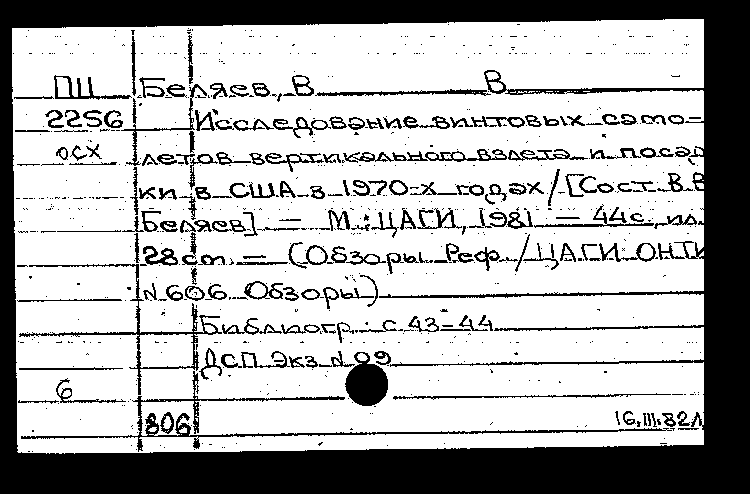 ПЦ Беляев, В В
2256 Исследование винтовых само-
осх летов вертикального взлета и посад
ки в США в 1970-х годах / [Сост. В.В
Беляев] — М.: ЦАГИ, 1981 — 44с, ил.
28cm. — (Обзоры. Реф. / ЦАГИ ОНТИ
N 606 Обзоры).
Библиогр.: с. 43-44
ДСП. Экз. N 09
6
806 16.III.82л